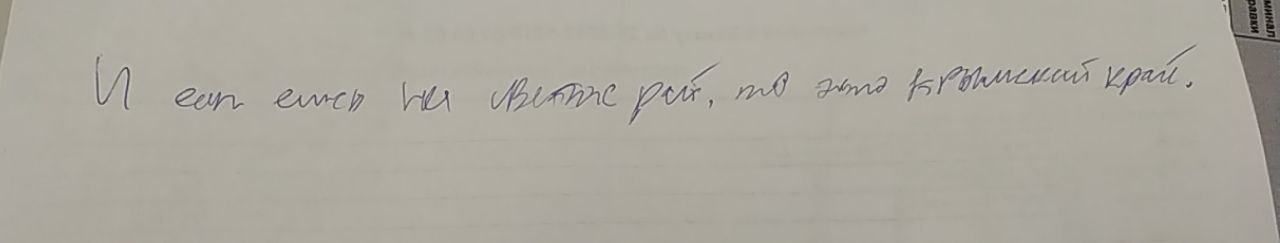 И если есть на свете рай, то это Крымский край.